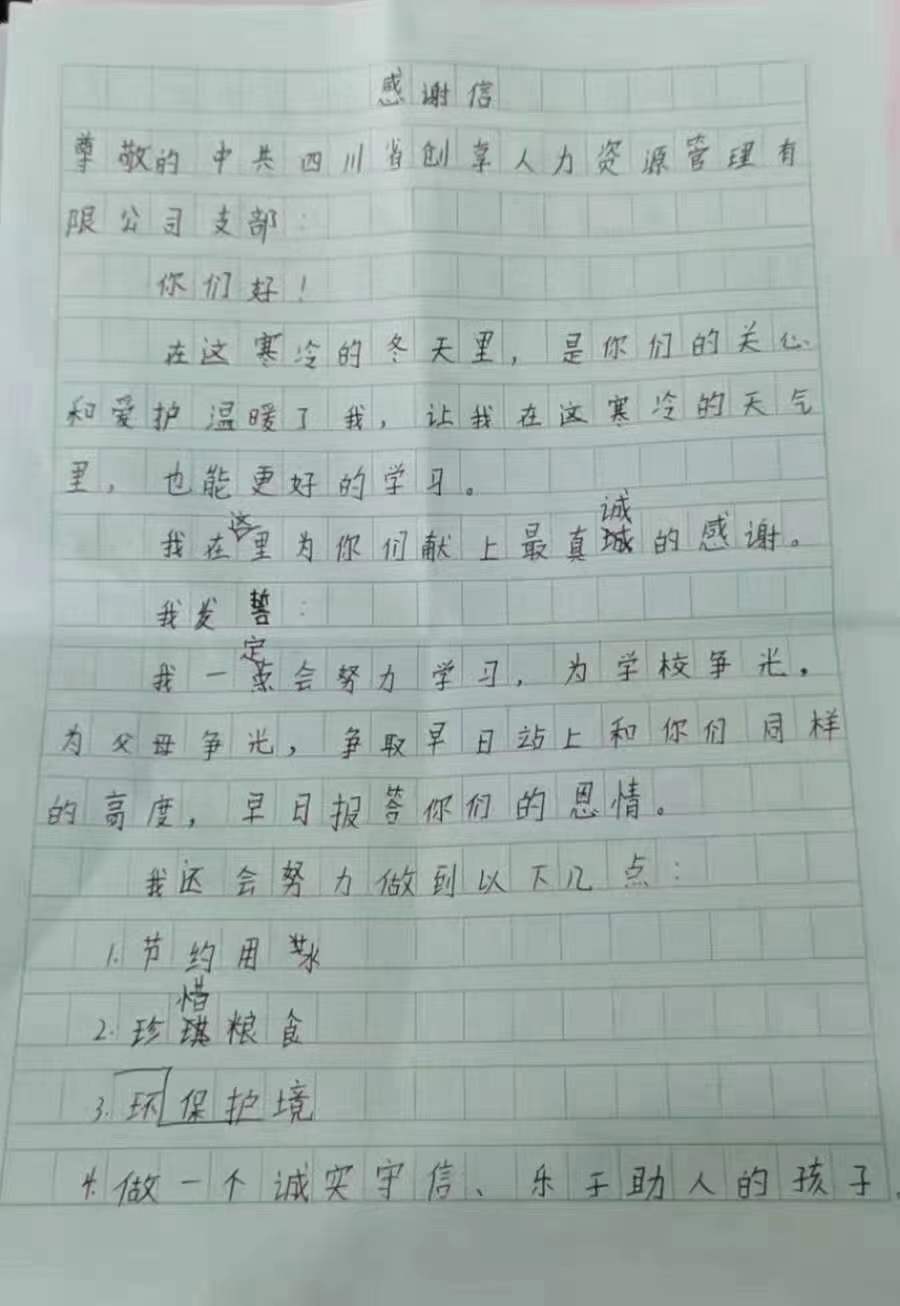 感谢信
尊敬的中共四川省创享人力资源管理有
限公司支部：
你们好！
在这寒冷的冬天里，是你们的关心
和爱护温暖了我，让我在这寒冷的天气
里，也能更好的学习。
我在这里为你们献上最真诚的感谢。
我发誓：
我一定会努力学习，为学校争光，
为父母争光，争取早日站上和你们同样
的高度，早日报答你们的恩情。
我还会努力做到以下几点：
1.节约用水
2.珍惜粮食
3.保护环境
4.做一个诚实守信、乐于助人的孩子。